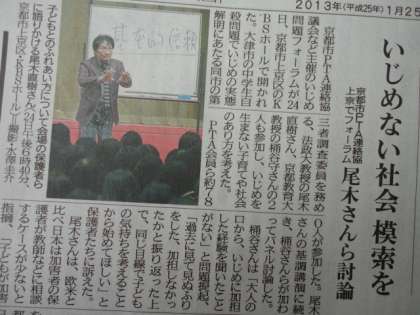 2013年(平成25年) 1月25
いじめない社会 模索を
京都市PTA連絡協
上京でフォーラム
尾木さんら討論
京都市PTA連絡協
議会など主催のいじめ
問題フォーラムが24
日、京都市上京区のK
BSホールで開かれ
た。大津市の中学生自
殺問題でいじめの実態
解明にあたる同市の第
三者調査委員を務め
る、法政大教授の尾木
直樹さん、京都教育大
教授の桶谷守さんの2
人も参加し、いじめを
生まない子育てや社会
のあり方を考えた。
PTA会員ら約18
0人が参加した。尾木
さんの基調講演に続
き、桶谷さんらが加わ
ってパネル討論した。
桶谷さんは「大人の
口から、いじめに加担
した経験を聞いたこと
がない」と問題提起。
「過去に見て見ぬふり
をした、加担しなかっ
たかと振り返った上
で、同じ目線で子ども
の気持ちを考えること
から始めてほしい」と
保護者たちに訴えた。
尾木さんは、欧米と
比べ日本は加害者の保
護者が教員などと相談
するケースが少ないと
指摘、「子どもが加害
基本的信頼
子どもとのふれあい方について会場の保護者ら
に語りかける尾木直樹さん(24日午後6時40分、
京都市上京区・KBSホール)=撮影・方澤圭介